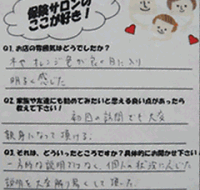 保険サロンの
ここが好き!
Q1. お店の雰囲気はどうでしたか?
木やオレンジ色が目に入り
明るく感じた
Q2. 家族や友達にも勧めてみたいと思える良い点があったら
教えて下さい!
初回の訪問でも大変
親身になって頂ける。
Q3. それは、どういったところですか?具体的にお聞かせ下さい
一方的な説明ではなく、個人の状況に応じた
説明を大変解り易くして頂いた。